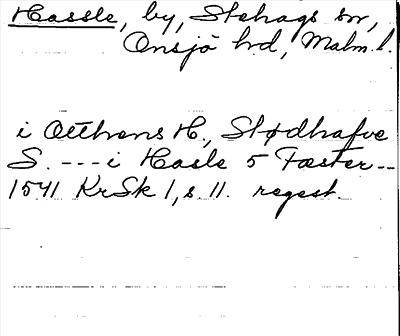 Hassle, by, Stehags sn,
Onsjö hd, Malm. l.
i Otthens H., Stødhafve
S. --- i Hasle 5 Fæster --
1541 KrSk 1, s. 11. regest.